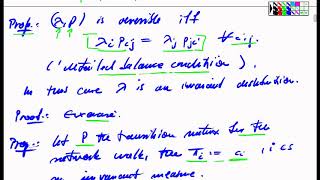 Prop: (λ, P) is reversible iff
λi Pij = λj Pji ∀ i,j
('detailed balance condition').
In this case λ is an invariant distribution.
Proof: Exercise.
Prop: Let P the transition matrix for the
network walk, then πi := ai, i ∈ S
an invariant measure.